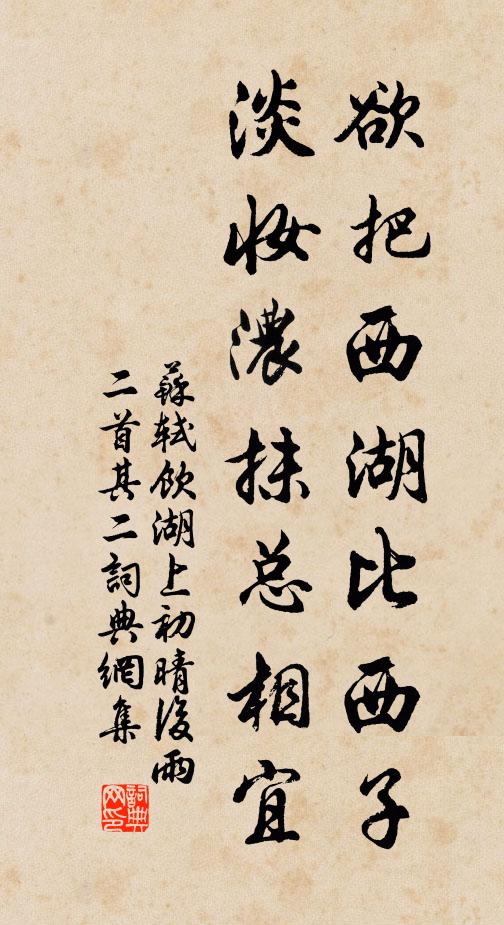 欲把西湖比西子
淡妆濃抹总相宜
蘇軾飲湖上初晴後雨
二首其二詞典網集
詞典网印